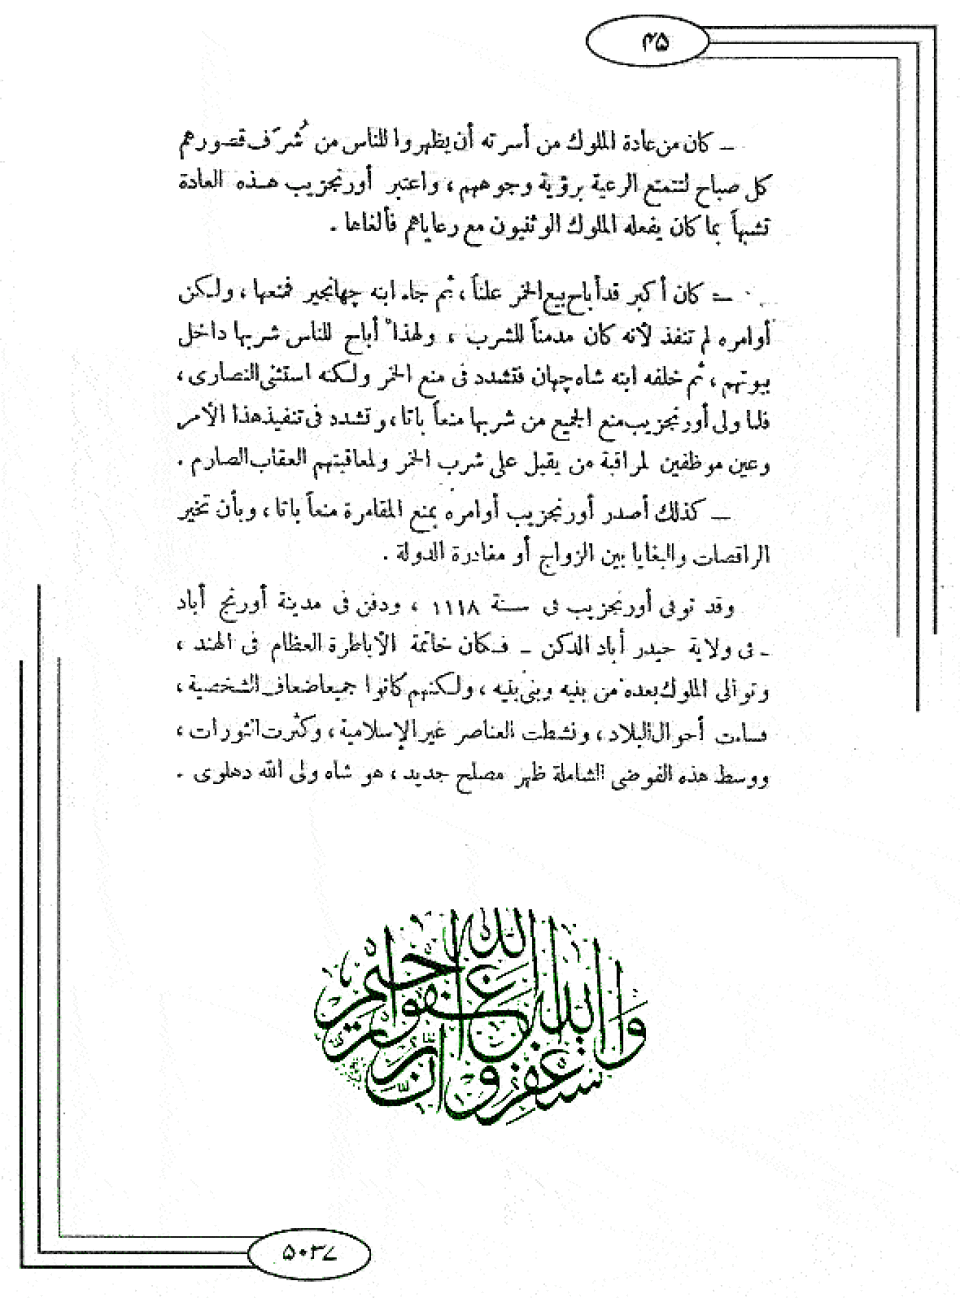 ۴۵
— كان من عادة الملوك من أسرته أن يظهروا للناس من شُرَف قصورهم
كل صباح لتتمتع الرعية برؤية وجوههم ، واعتبر أورنجزيب هذه العادة
تشبهاً بما كان يفعله الملوك الوثنيون مع رعاياهم فألغاها .
— كان أكبر قد أباح بيع الخمر علناً ، ثم جاء ابنه جهانجير فمنعها ، ولكن
أوامره لم تنفذ لأنه كان مدمناً للشرب ، ولهذا أباح للناس شربها داخل
بيوتهم ، ثم خلفه ابنه شاه جهان فتشدد فى منع الخمر ولكنه استثنى النصارى ،
فلما ولى أورنجزيب منع الجميع من شربها منعاً باتا ، وتشدد فى تنفيذ هذا الأمر
وعين موظفين لمراقبة من يقبل على شرب الخمر ولمعاقبتهم العقاب الصارم .
— كذلك أصدر أورنجزيب أوامره بمنع المقامرة منعاً باتا ، وبأن تخير
الراقصات والبغايا بين الزواج أو مغادرة الدولة .
وقد توفى أورنجزيب فى سنة ١١١٨ ، ودفن فى مدينة أورنج أباد
- فى ولاية حيدر أباد الدكن - فكان خاتمة الأباطرة العظام فى الهند ،
وتوالى الملوك بعده من بنيه وبنى بنيه ، ولكنهم كانوا جميعا ضعاف الشخصية ،
فساءت أحوال البلاد ، ونشطت العناصر غير الإسلامية ، وكثرت الثورات ،
ووسط هذه الفوضى الشاملة ظهر مصلح جديد ، هو شاه ولى الله دهلوى .
واستغفروا الله إن الله غفور رحيم
۵۰۳۷